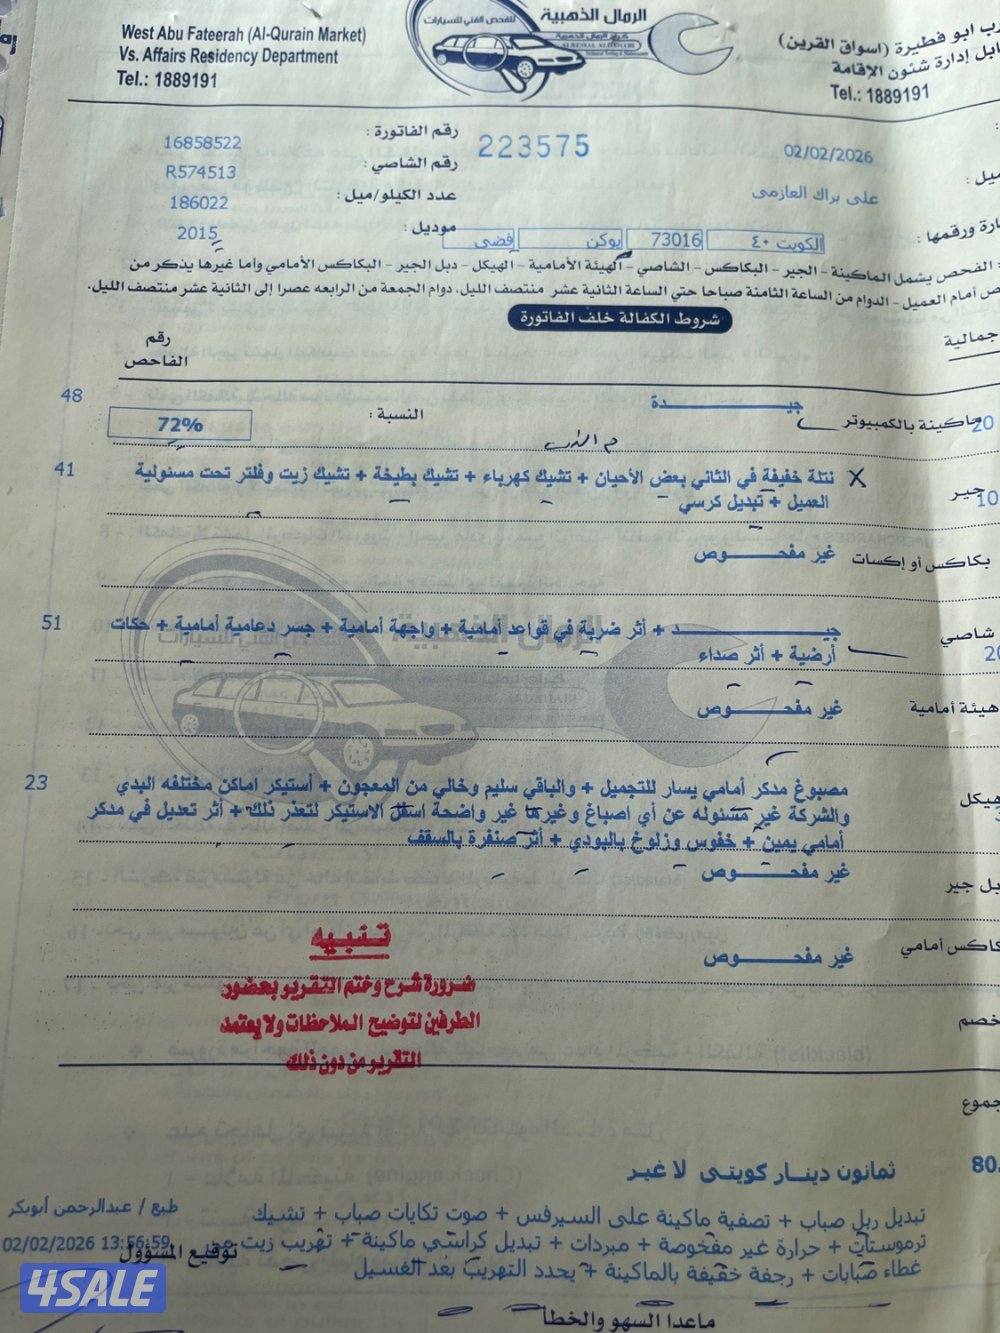 الرمال الذهبية
للفحص الفني للسيارات
West Abu Fateerah (Al-Qurain Market)
Vs. Affairs Residency Department
Tel.: 1889191
ابو فطيرة (اسواق القرين)
إدارة شئون الإقامة
Tel.: 1889191
02/02/2026
223575
رقم الفاتورة : 16858522
رقم الشاصي : R574513
على براك العازمى
عدد الكيلو/ميل : 186022
موديل : 2015
الكويت ٤٠ 73016 يوكن فضى
الفحص يشمل الماكينة - الجير - البكاكس - الشاصي - الهيئة الأمامية - الهيكل - دبل الجير - البكاكس الأمامي وأما غيرها يذكر من
أمام العميل - الدوام من الساعة الثامنة صباحا حتي الساعة الثانية عشر منتصف الليل. دوام الجمعة من الرابعه عصرا إلى الثانية عشر منتصف الليل.
شروط الكفالة خلف الفاتورة
رقم
الفاحص
ماكينة بالكمبيوتر جيدة النسبة : 72% 48
20
جير X نتلة خفيفة في الثاني بعض الأحيان + تشيك كهرباء + تشيك بطيخة + تشيك زيت وفلتر تحت مسئولية 41
10 العميل + تبديل كرسي
بكاكس أو إكسات غير مفحوص
شاصي جيد + أثر ضربة في قواعد أمامية + واجهة أمامية + جسر دعامية أمامية + حكات 51
أرضية + أثر صداء
هيئة أمامية غير مفحوص
مصبوغ مدكر أمامي يسار للتجميل + والباقي سليم وخالي من المعجون + أستيكر اماكن مختلفه البدي 23
والشركة غير مسئوله عن أي اصباغ وغيرها غير واضحة اسفل الاستيكر لتعذر ذلك + أثر تعديل في مدكر
أمامي يمين + خفوس وزلوخ بالبودي + أثر صنفرة بالسقف
جير غير مفحوص
أمامي غير مفحوص
تنبيه
ضرورة شرح وختم التقرير بحضور
الطرفين لتوضيح الملاحظات ولا يعتمد
التقرير من دون ذلك
خصم
80. ثمانون دينار كويتى لا غير
تبديل ربل صباب + تصفية ماكينة على السيرفس + صوت تكايات صباب + تشيك
ترموستات + حرارة غير مفحوصة + مبردات + تبديل كراسي ماكينة + تهريب زيت من
غطاء صبابات + رجفة خفيفة بالماكينة + يحدد التهريب بعد الغسيل
طبع / عبدالرحمن أبوبكر
02/02/2026 13:56:59
توقيع المسؤول
ماعدا السهو والخطأ
4SALE